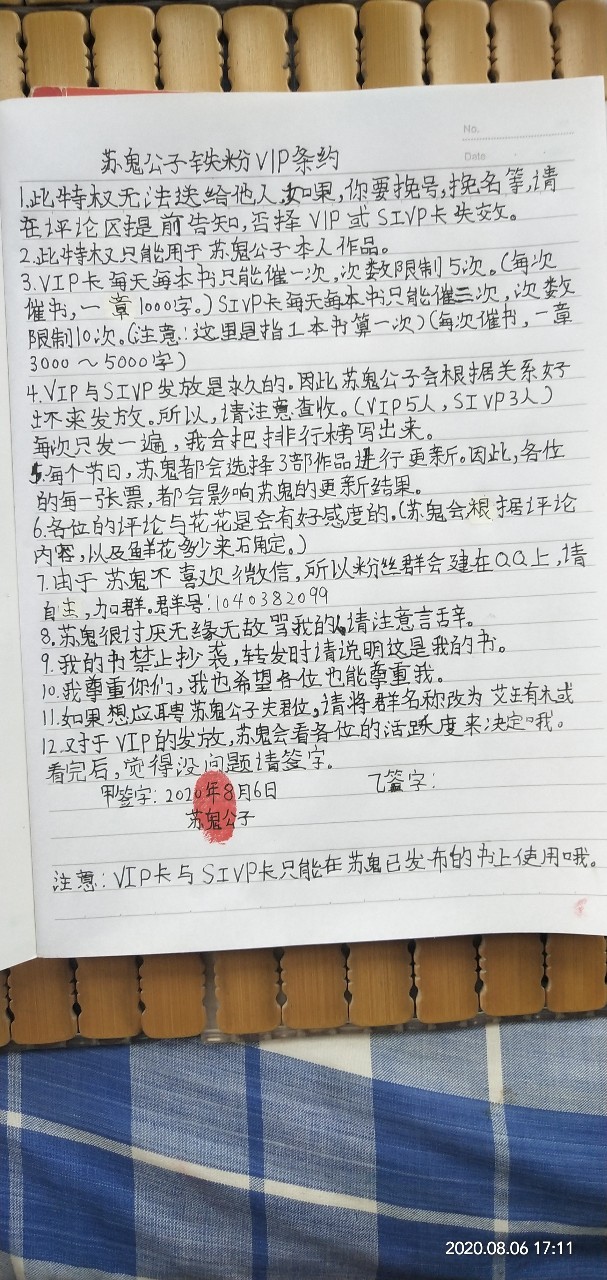 No.
Date
苏鬼公子铁粉VIP条约
1.此特权无法送给他人.如果,你要换号,换名等,请
在评论区提前告知,否择VIP或SIVP卡失效。
2.此特权只能用于苏鬼公子本人作品。
3.VIP卡每天每本书只能催一次,次数限制5次。(每次
催书,一章1000字。)SIVP卡每天每本书只能催三次,次数
限制10次。(注意:这里是指1本书算一次)(每次催书,一章
3000~5000字)
4.VIP与SIVP发放是永久的.因此苏鬼公子会根据关系好
坏来发放。所以,请注意查收。(VIP5人,SIVP3人)
每次只发一遍,我会把排行榜写出来。
5.每个节日,苏鬼都会选择3部作品进行更新。因此,各位
的每一张票,都会影响苏鬼的更新结果。
6.各位的评论与花花是会有好感度的.(苏鬼会根据评论
内容,以及鲜花多少来石角定。)
7.由于苏鬼不喜欢微信,所以粉丝群会建在QQ上,请
自主,加群.群号:1040382099
8.苏鬼很讨厌无缘无故骂我的,请注意言舌辛。
9.我的书禁止抄袭,转发时请说明这是我的书。
10.我尊重你们,我也希望各位也能尊重我。
11.如果想应聘苏鬼公子夫君位,请将群名称改为艾王有未或
12.对于VIP的发放,苏鬼会看各位的活跃度来决定哦。
看完后,觉得没问题请签字.
甲签字:2020年8月6日 乙签字:
苏鬼公子
注意:VIP卡与SIVP卡只能在苏鬼已发布的书上使用哦。
2020.08.06 17:11